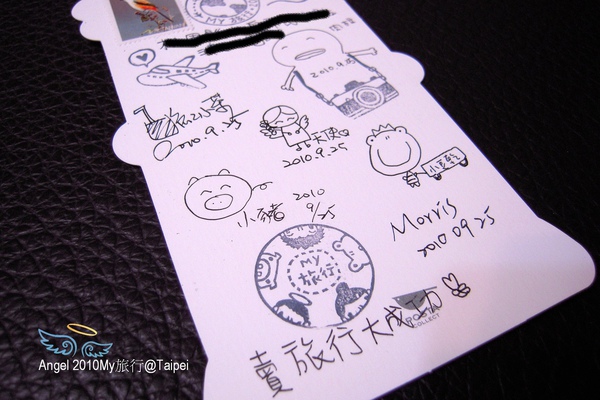 MY 旅行
2010.9.25
2010.9.25
天使
2010.9.25
小麥乾
小豬 2010
9/25
Morris
2010 09 25
MY
旅行
COLLECT
賣旅行大成功
Angel 2010My旅行@Taipei